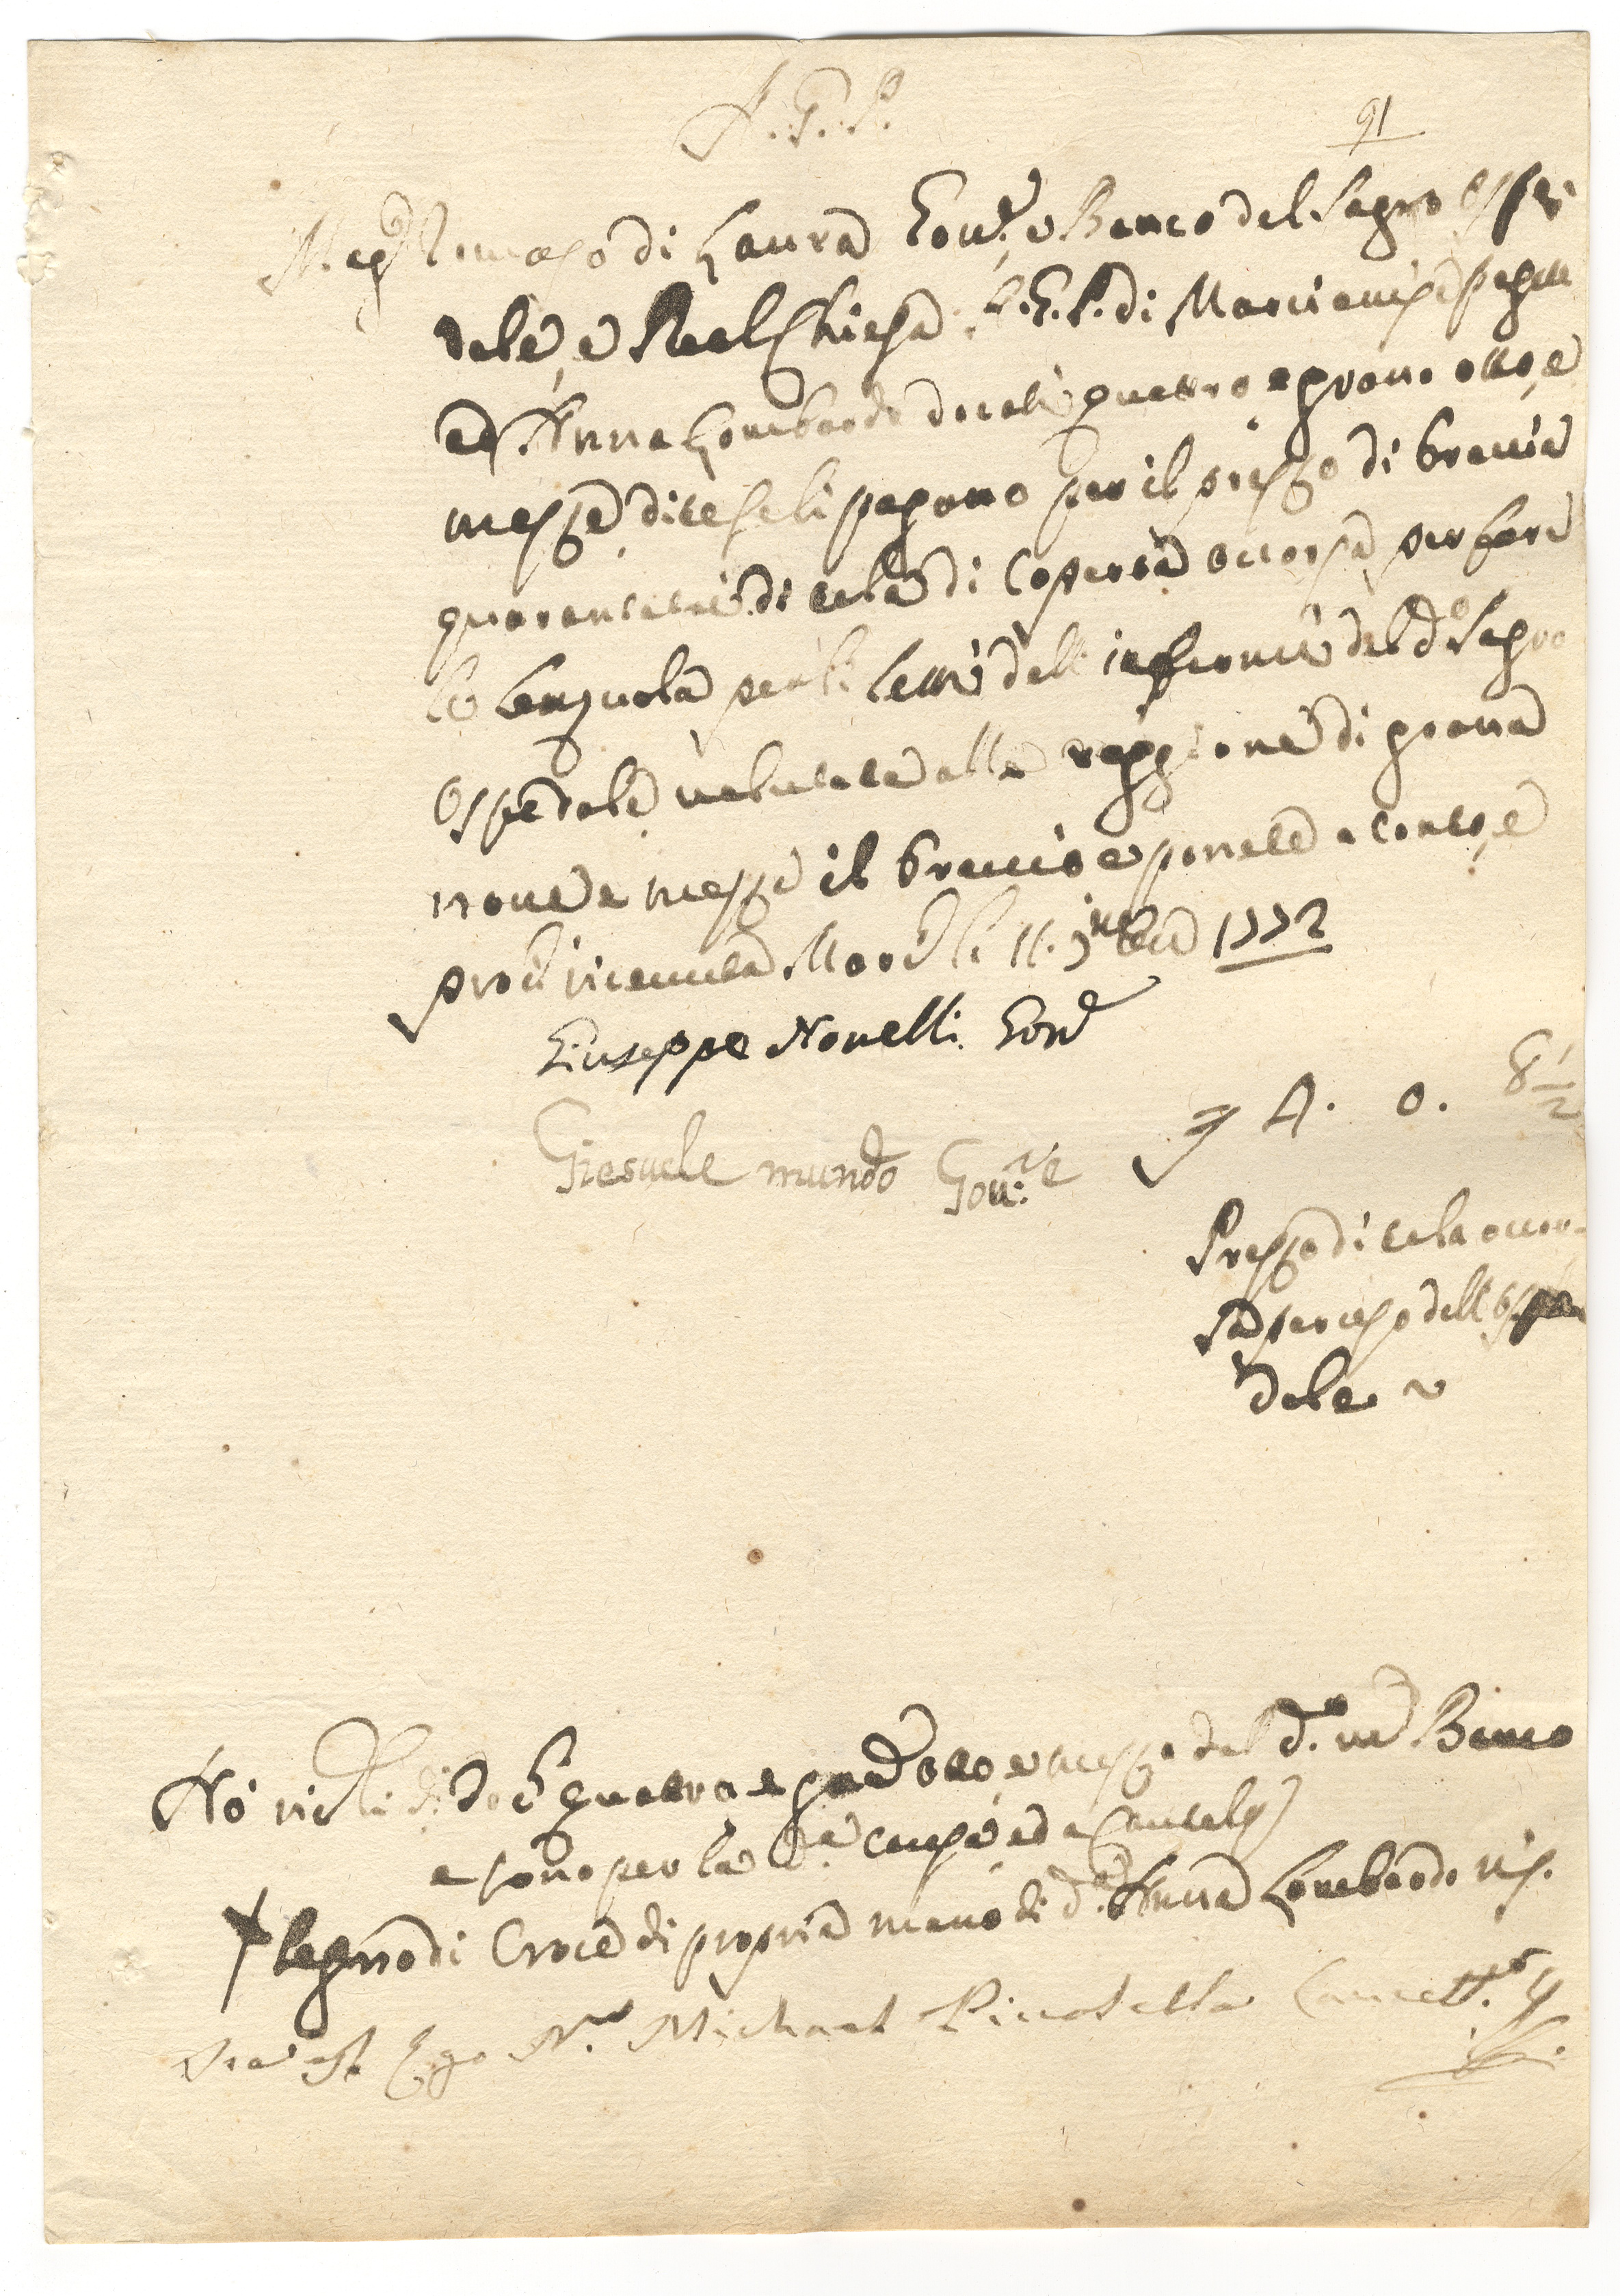 A. G. P.
91
Mag.co Tomaso di Laura Gov.re e Banco del Sagro Ospe
dale, e Real Chiesa A. G. P. di Marcianise pagate
ad Anna Lombardo docati quattro e grana otto, e
mezze dite seli pagano per il prezzo di braccia
quarantatre di tela di Coperta occorsa per fare
le lenzuola per li letti delli infermi del d.o Sagro
Ospedale valutate alla raggione di grana
nove e mezze il braccio e ponete a conto, e
pro.d ricevuta Mar.e li 11. 9mbre 1772
Giuseppe Novelli Gov.e
Giesuele mundo Gov.re
4. 0. 8 1/2
Prezzo di tela occor-
sa per uso dell Ospe
dale
Hò ric.ti li d.i doc.i quattro e gra.e otto e mezze dal d.o mè Banco
e sono per la d.a causa ed a Cautela
+ Segno di Croce di propria mano di d.a Anna Lombardo ric.
Ita est Ego N.r Michael Piccolella Cancell.rs